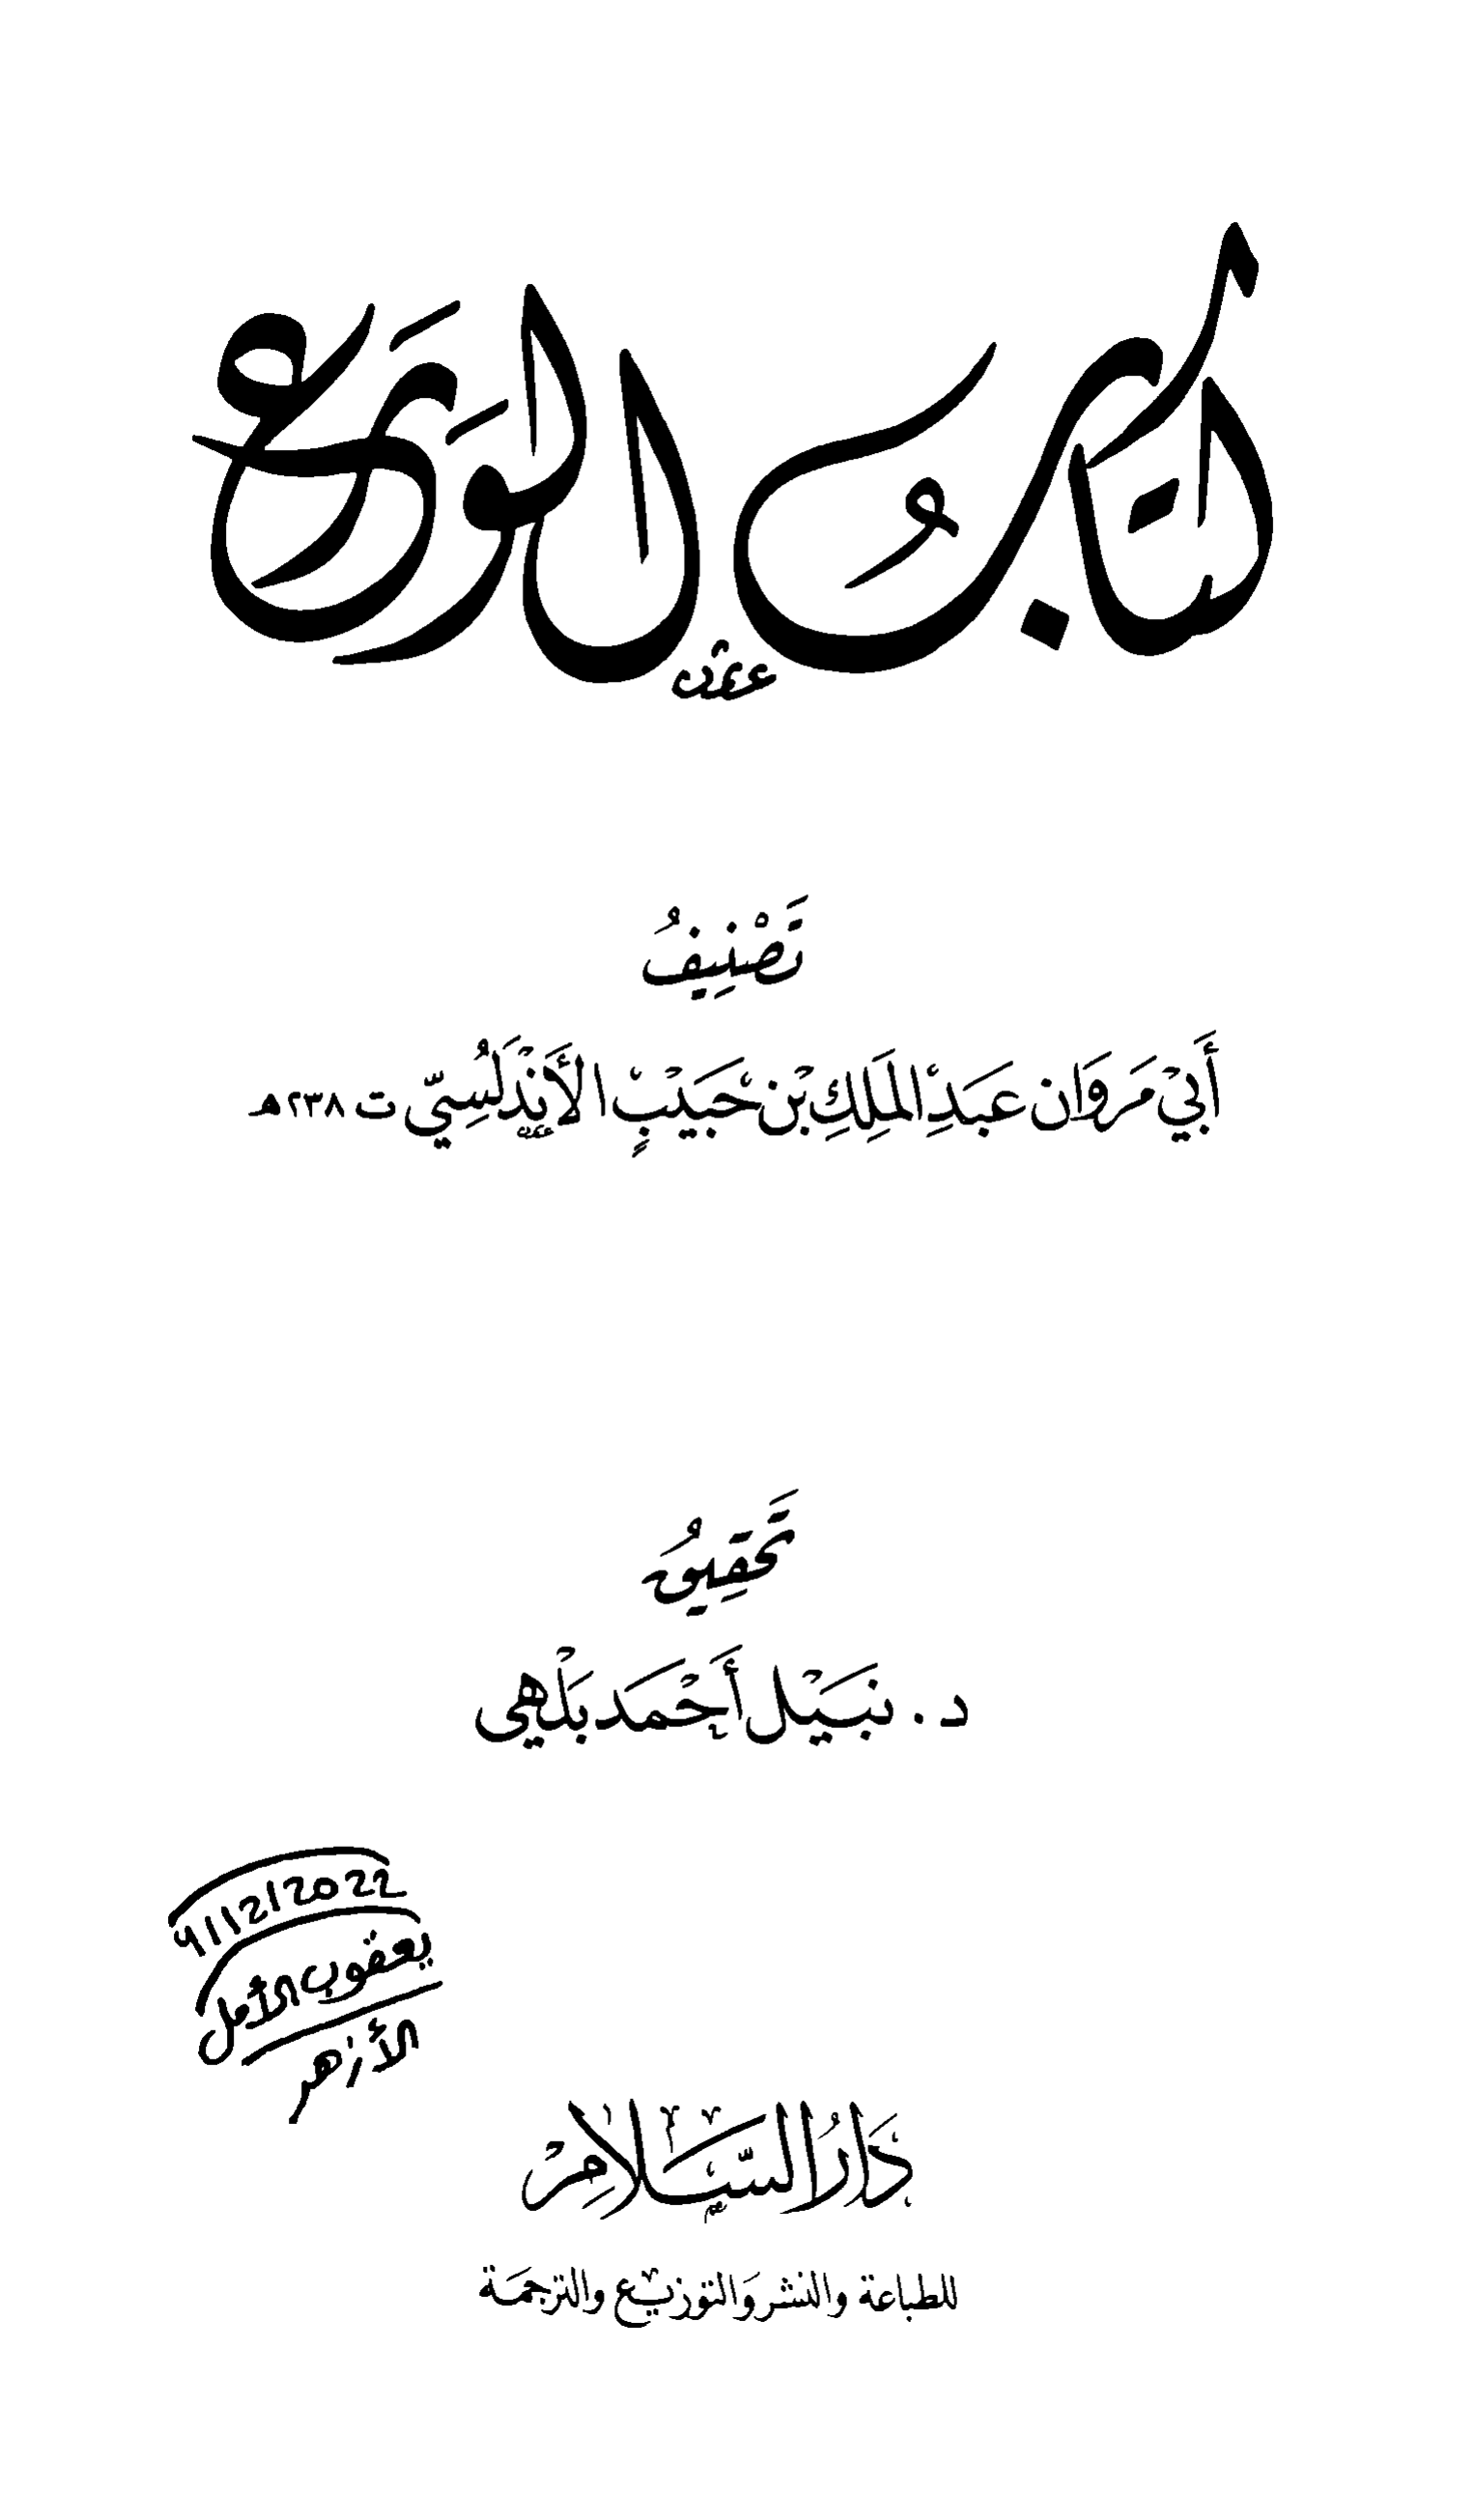 كتاب الورع
تَصْنِيفُ
أَبِيْ مَرْوَان عَبْدِ الْمَلِكِ بْنِ حَبِيْبٍ الأَنْدَلُسِيِّ ت ٢٣٨هـ
تَحْقِيقُ
د. نَبِيْل أَحْمَد بَلْهِي
9/12/2022
يعقوب الأمل
الأزهر
دَارُ السَّلَامِ
للطباعة والنشر والتوزيع والترجمة